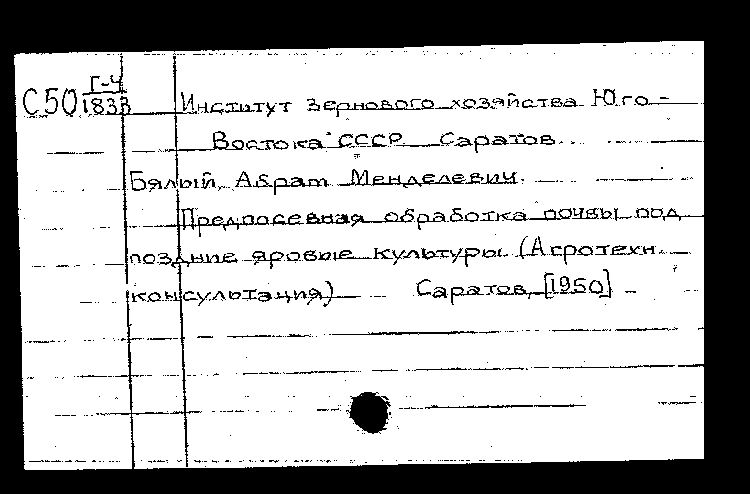 С50 Г-4/1833 Институт зернового хозяйства Юго-
Востока СССР Саратов.
Бялый, Абрам Менделевич.
Предпосевная обработка почвы под
поздние яровые культуры (Агротехн.
консультация) Саратов, [1950]